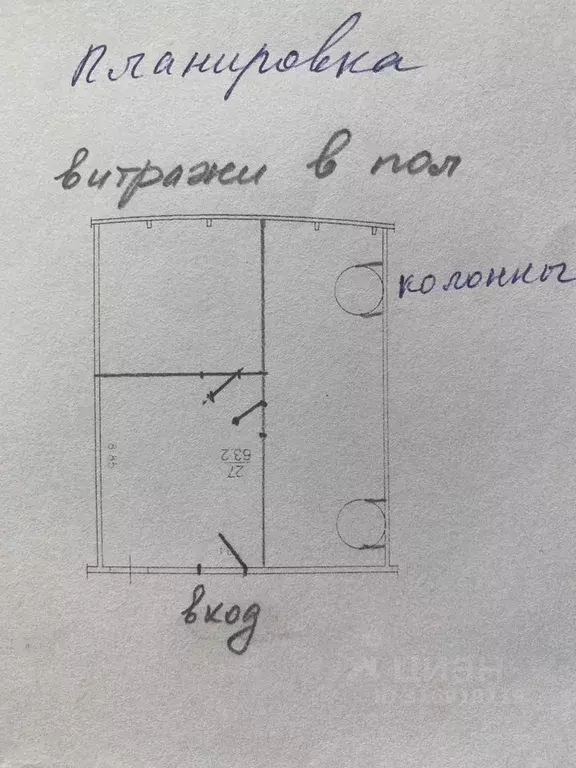 Планировка
витражи в пол
колонны
8.85
63.2
27
вход